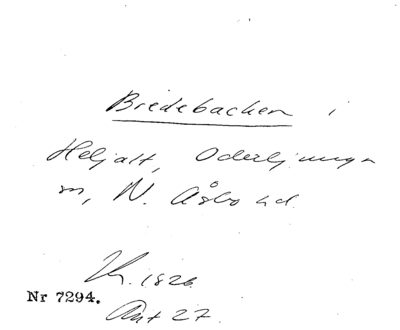 Bredebacken i
Heljalt, Oderljunga
sn, N. Åsbo hd.
Kr. 1826
Nr 7294.
Ant 27